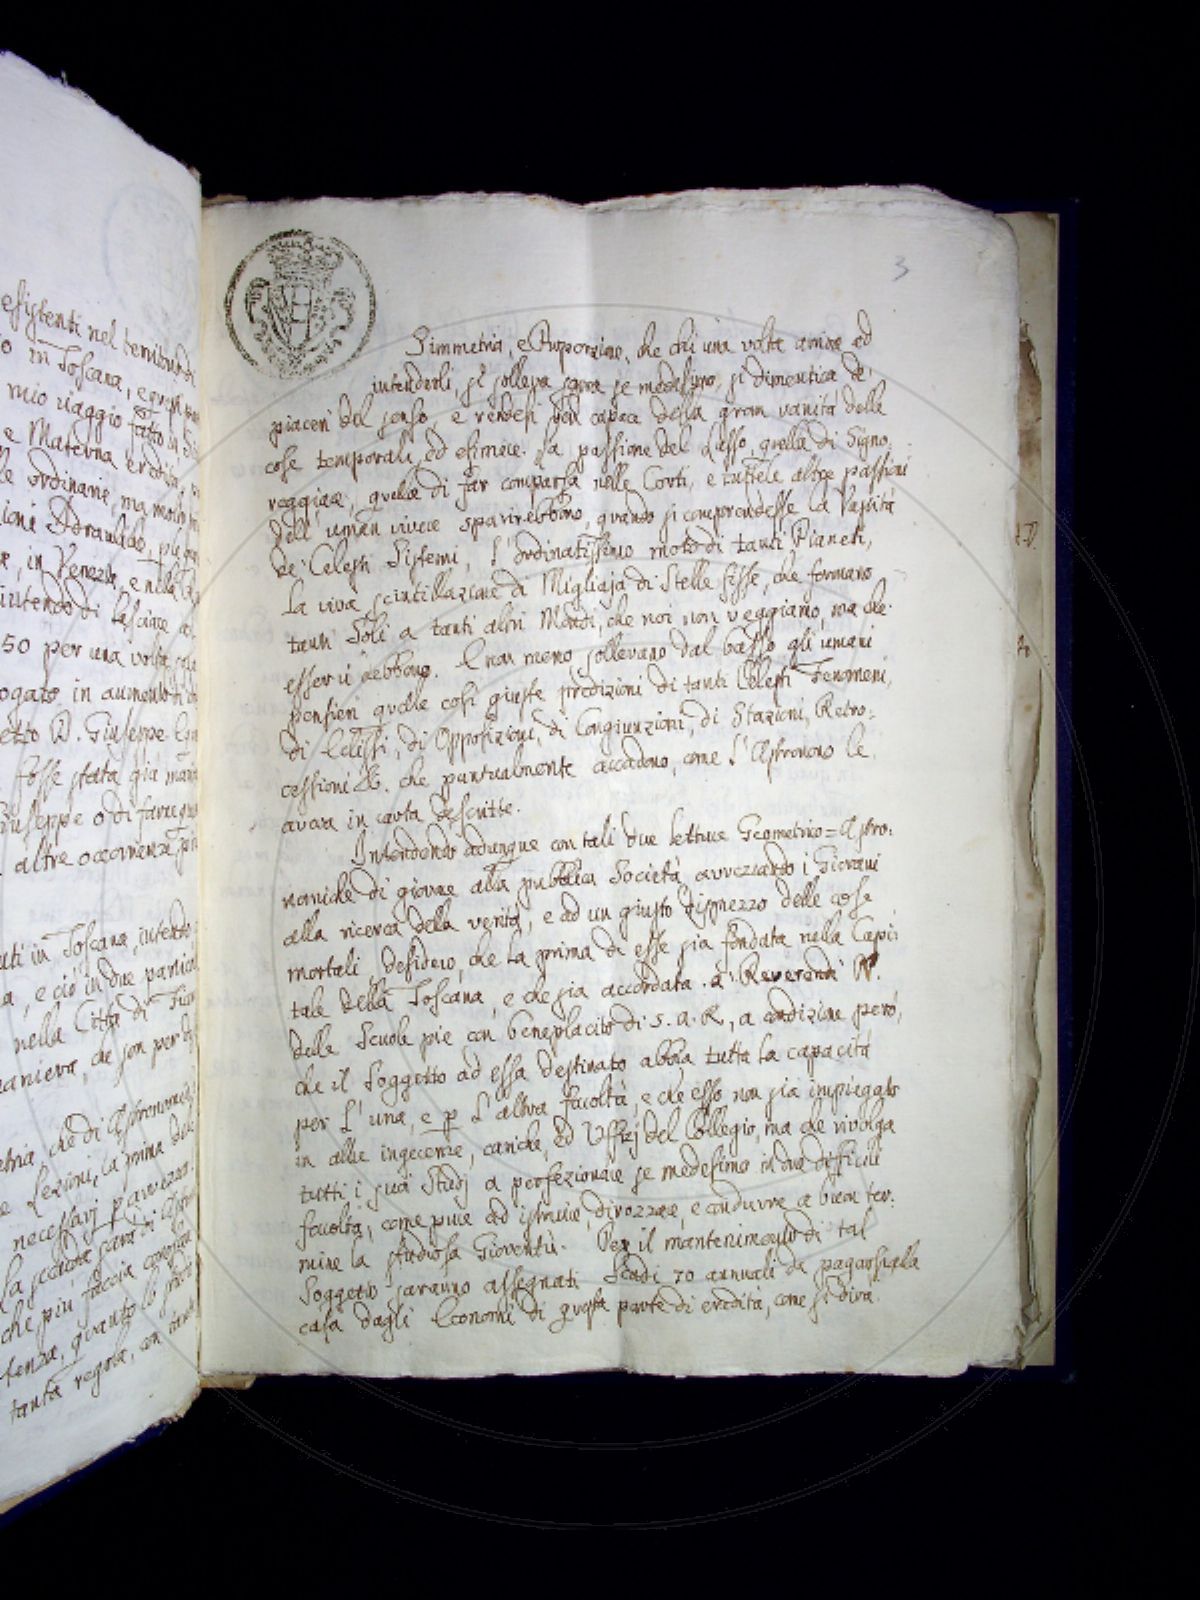 esistenti nel territorio di
o in Toscana, e questi
mio viaggio fatto in
e Materna eredità,
le ordinarie, ma molto
ioni
, in Venezia, e nella
intendo di lasciare
50 per una volta sola
ogato in aumento di
etto D. Giuseppe
fosse stata già
Giuseppe o di farne
altre occorrenze,
uti in Toscana, intendo
a, e ciò in due
nella Città di
maniera, che son per
etria, che di Astronomia
e Lezioni, la prima
necessarj p avvezza
La seconda sarà di
che più faccia
tenza, quanto lo
tanta regola, con tanta
3
Simmetria, e Proporzione, che chi una volta arriva ad
intenderli, si solleva sopra se medesimo, si dimentica de'
piaceri del senso, e rendesi più capace della gran vanità delle
cose temporali, ed efimere. La passione del Lusso, quella di Signo,
reggiare, quella di far comparsa nelle Corti, e tuttele altre passioni
dell' uman vivere sparirebbono, quando si comprendesse la Vastità
de' Celesti Sistemi, l' ordinatissimo moto di tanti Pianeti,
La viva scintillazione di Migliaja di Stelle fisse, che formano
tanti Soli a tanti altri Mondi, che noi non veggiamo, ma che
esservi debbono. E non meno sollevano dal basso gli umani
pensieri quelle così giuste predizioni di tanti Celesti Fenomeni,
di Eclissi, di Opposizioni, di Congiunzioni, di Stazioni, Retro=
cessioni &c. che puntualmente accadono, come l' Astronomo le
aveva in carta descritte.
Intendendo adunque con tali due letture Geometrico=Astro:
nomiche di giovare alla pubblica Società avvezzando i Giovani
alla ricerca della verità, e ad un giusto disprezzo delle cose
mortali, desidero, che la prima di esse sia fondata nella Capi:
tale della Toscana, e che sia accordata a' Reverendi PP.
delle Scuole pie con beneplacito di S. A. R., a condizione però,
che il Soggetto ad essa destinato abbia tutta la capacità
per l' una, e p l' altra facoltà, e che esso non sia impiegato
in altre ingerenze, cariche, ed Uffizj del Collegio, ma che rivolga
tutti i suoi Studj a perfezionare se medesimo in due difficili
facoltà, come pure ad istruire, dirozzare, e condurre a buon ter:
mine la studiosa Gioventù. Per il mantenimento di tal
Soggetto saranno assegnati Scudi 70 annuali da pagarsi alla
casa dagli Economi di questa parte di eredità, come si dirà.